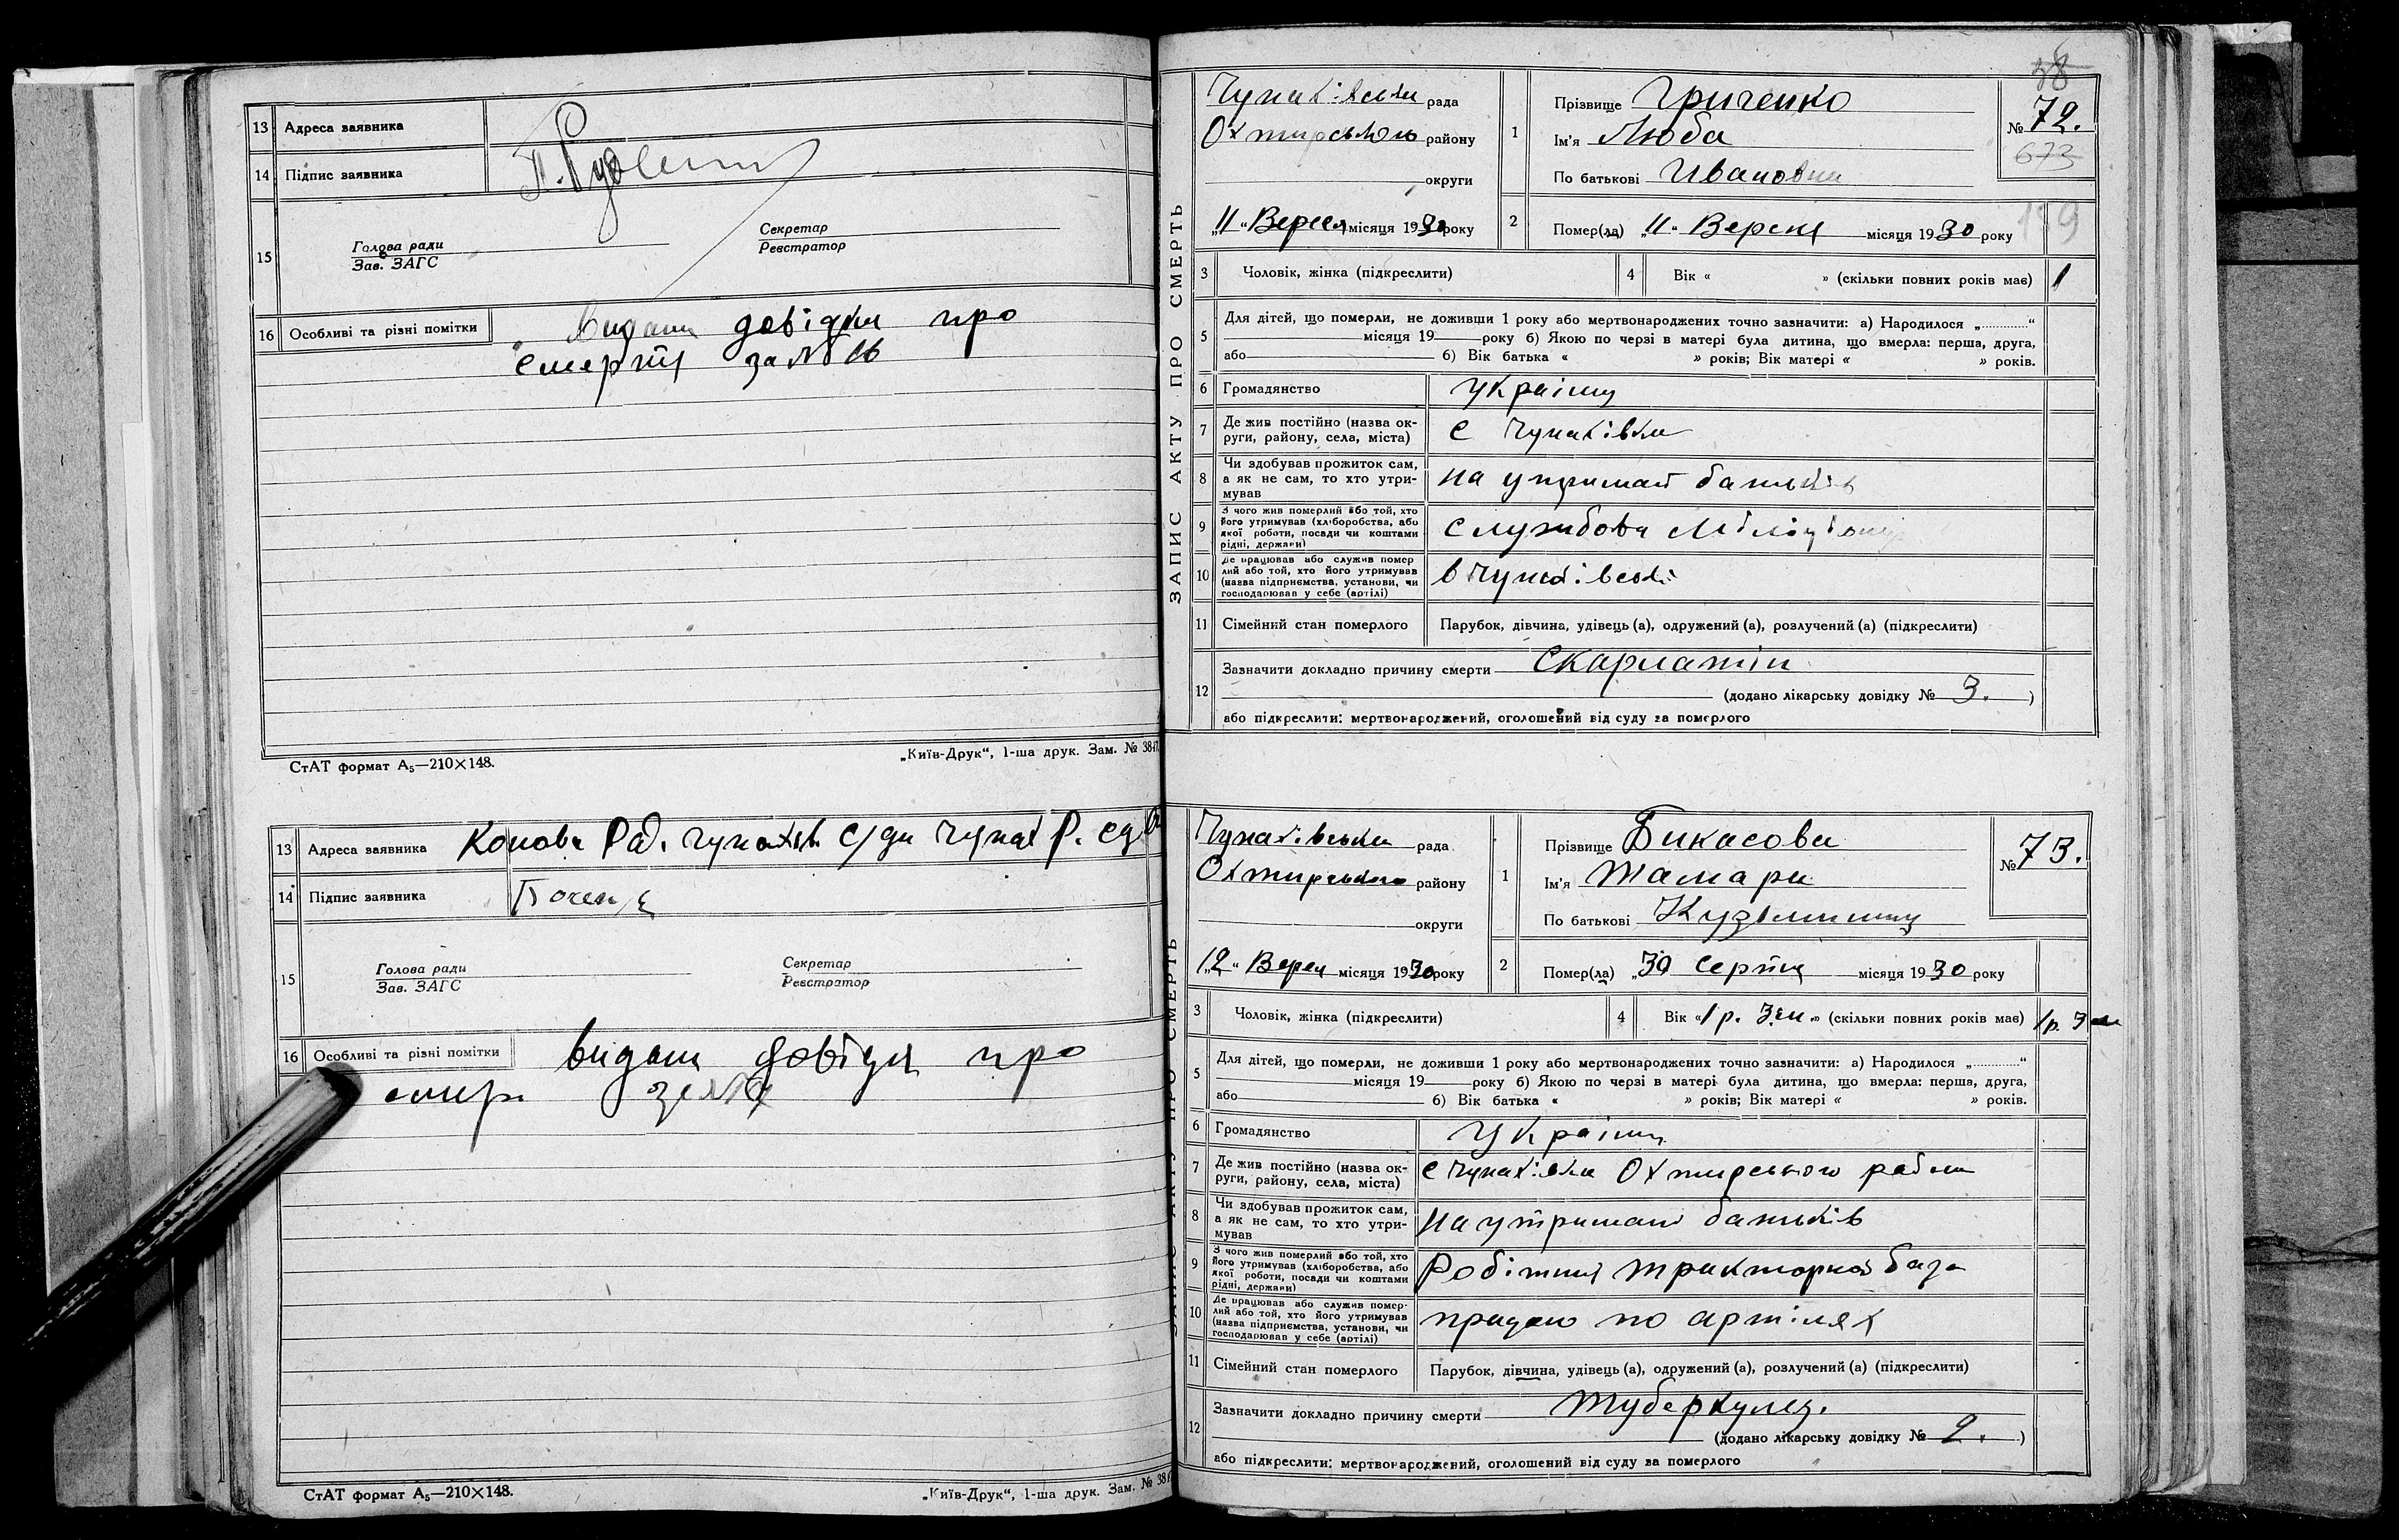 13 Адреса заявника
14 Підпис заявника
15
Голова ради
Зав. ЗАГС
Секретар
Реєстратор
16 Особливі та різні помітки
довідки про
смерть за №
СтАТ формат А₅—210×148.
„Київ-Друк“, 1-ша друк. Зам. № 3847.
13 Адреса заявника
14 Підпис заявника
15
Голова ради
Зав. ЗАГС
Секретар
Реєстратор
16 Особливі та різні помітки
видани про
СтАТ формат А₅—210×148.
„Київ-Друк“, 1-ша друк. Зам. № 38
ЗАПИС АКТУ ПРО СМЕРТЬ
38
Чупахівська рада
Охтирського району
округи
„11“ Верес місяця 1930 року
1 Прізвище Гриченко
Ім'я Люба
По батькові Ивановна
№ 72.
673
159
2 Помер(ла) „11“ Вересня місяця 1930 року
3 Чоловік, жінка (підкреслити)
4 Вік « » (скільки повних років має) 1
5 Для дітей, що померли, не доживши 1 року або мертвонароджених точно зазначити: а) Народилося „............“
місяця 19 року б) Якою по черзі в матері була дитина, що вмерла: перша, друга,
або б) Вік батька « » років; Вік матері « » років.
6 Громадянство
7 Де жив постійно (назва ок-
руги, району, села, міста)
с Чупахівка
8 Чи здобував прожиток сам,
а як не сам, то хто утри-
мував
на утриман батьків
9 З чого жив померлий або той, хто
його утримував (хліборобства, або
якої роботи, посади чи коштами
рідні, держави)
службова
10 Де працював або служив помер
лий або той, хто його утримував
(назва підприємства, установи, чи
господарював у себе (артілі)
11 Сімейний стан померлого
Парубок, дівчина, удівець (а), одружений (а), розлучений (а) (підкреслити)
12 Зазначити докладно причину смерти Скарлатін
(додано лікарську довідку № 3. )
або підкреслити: мертвонароджений, оголошений від суду за померлого
Чупахівська рада
Охтирського району
округи
„12“ Верес місяця 1930 року
1 Прізвище Бикасова
Ім'я Тамара
По батькові
№ 73.
2 Помер(ла) „30 Серпня місяця 1930 року
3 Чоловік, жінка (підкреслити)
4 Вік « 1 р. 3 м. » (скільки повних років має) 1 р. 3 м
5 Для дітей, що померли, не доживши 1 року або мертвонароджених точно зазначити: а) Народилося „............“
місяця 19 року б) Якою по черзі в матері була дитина, що вмерла: перша, друга,
або б) Вік батька « » років; Вік матері « » років.
6 Громадянство
7 Де жив постійно (назва ок-
руги, району, села, міста)
с Чупахівка Охтирського району
8 Чи здобував прожиток сам,
а як не сам, то хто утри-
мував
на утримані батьків
9 З чого жив померлий або той, хто
його утримував (хліборобства, або
якої роботи, посади чи коштами
рідні, держави)
Робітник тракторної база
10 Де працював або служив помер-
лий або той, хто його утримував
(назва підприємства, установи, чи
господарював у себе (артілі)
працює по артілях
11 Сімейний стан померлого
Парубок, дівчина, удівець (а), одружений (а), розлучений (а) (підкреслити)
12 Зазначити докладно причину смерти Туберкулез.
(додано лікарську довідку № 2. )
або підкреслити: мертвонароджений, оголошений від суду за померлого